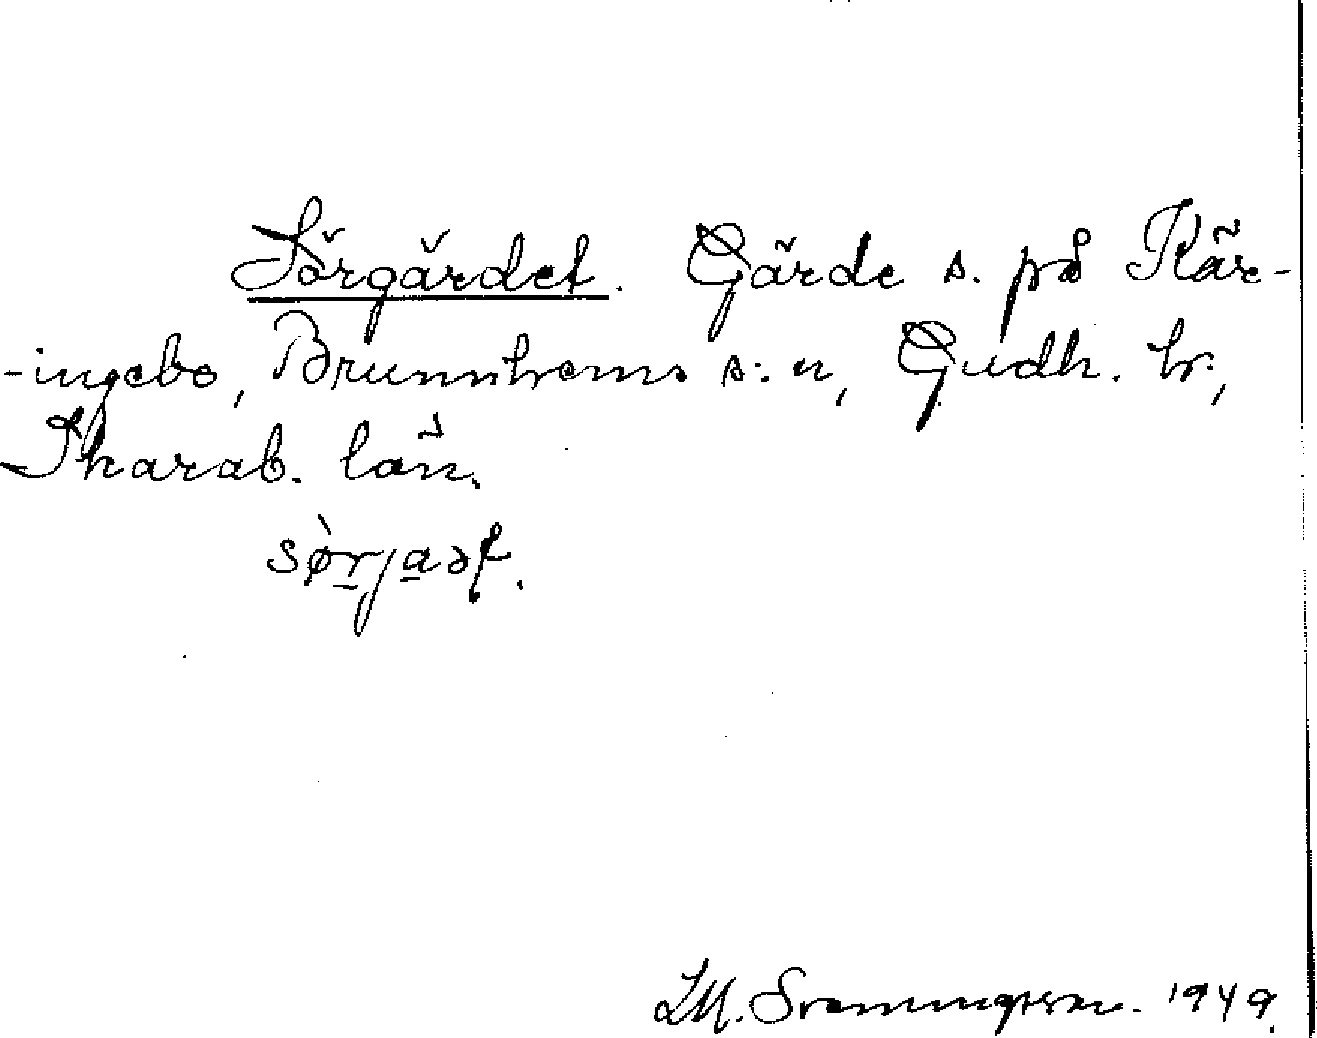 Sörgärdet. Gärde s. på Kär-
-ingebo, Brunnhems s:n, Gudh. hr,
Skarab. län.
sø̀rjaət.
LM. Svenningsson. 1949.